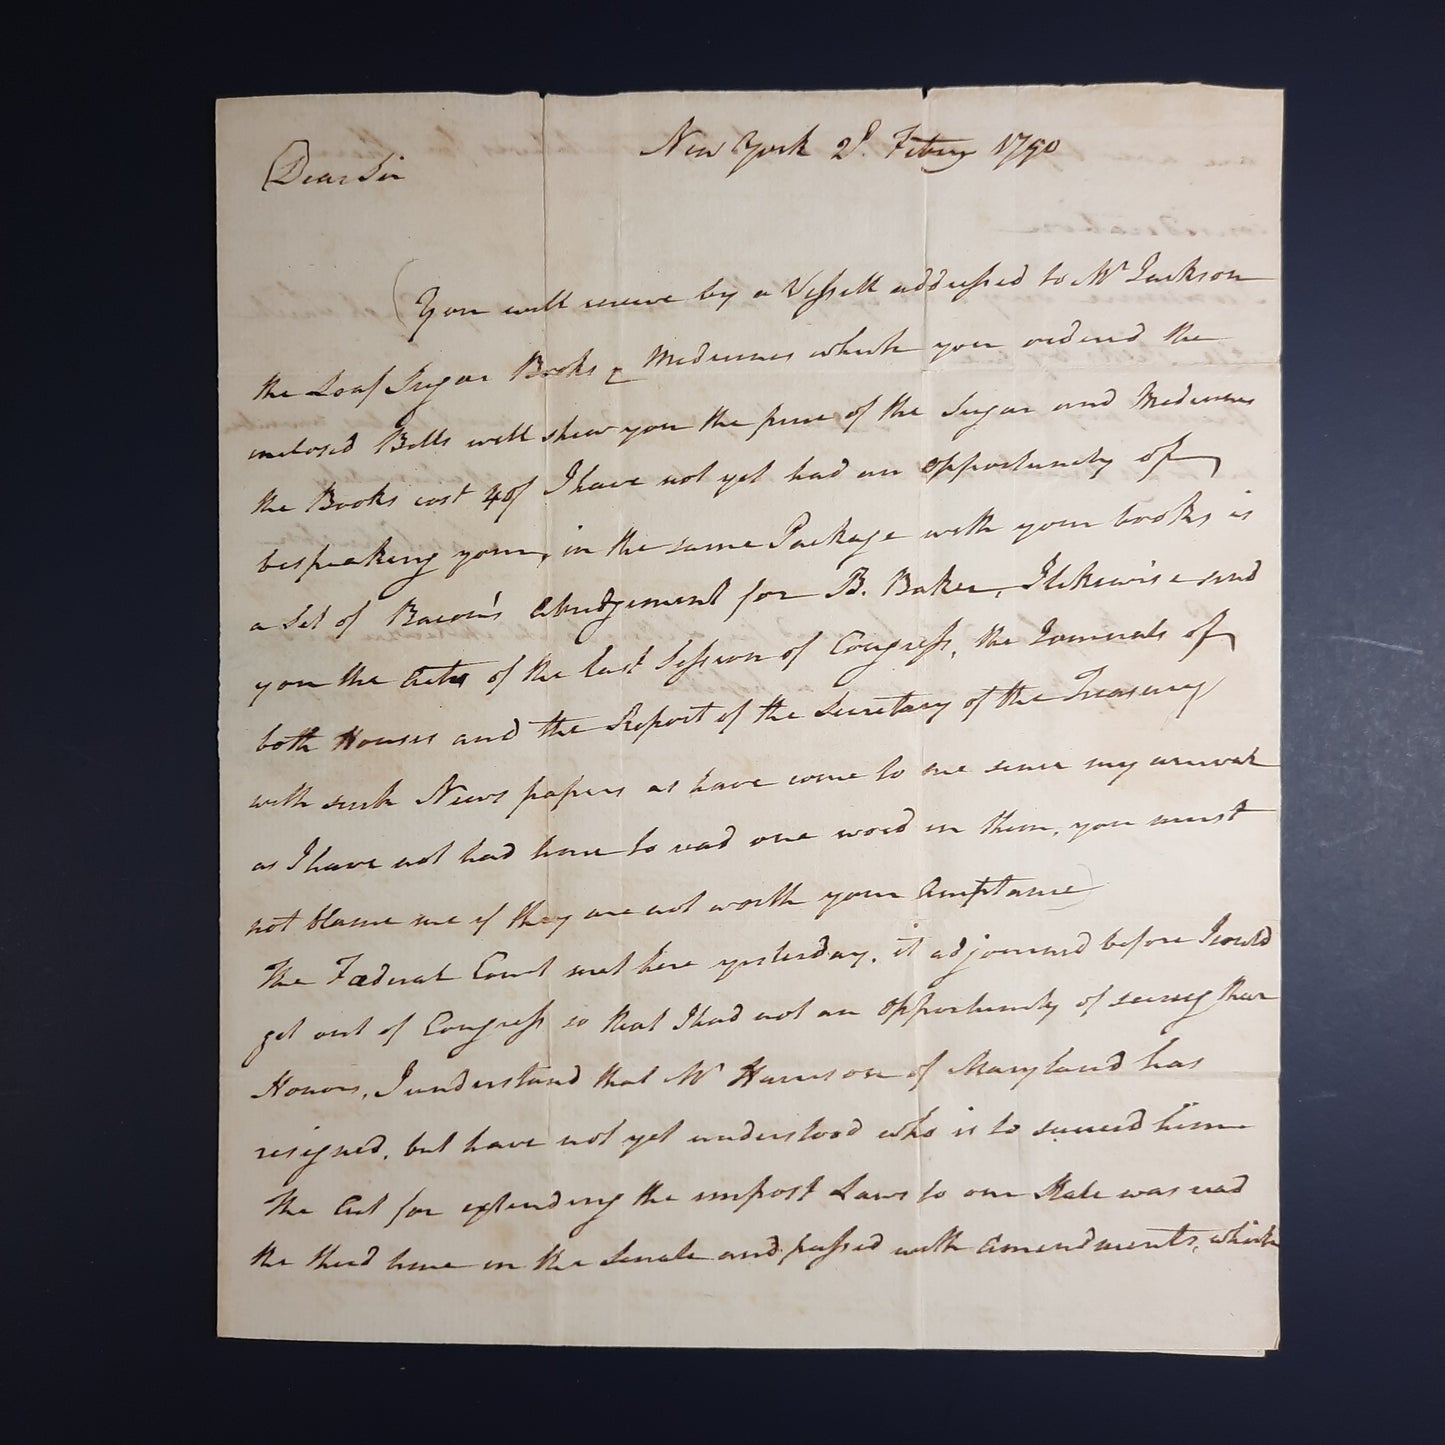 New York 2d. Febuy 1790
Dear Sir
You will receive by a Vessell addressed to Mr Jackson
the Loaf Sugar Books & Medicines which you ordered the
inclosed Bills will shew you the price of the Sugar and Medicines
the Books cost I have not yet had an opportunity of
bespeaking your, in the same Package with your books is
a Set of Bacon's Abridgement for B. Baker, I likewise send
you the Acts of the last Session of Congress, the Journals of
both Houses and the Report of the Secretary of the Treasury
with such News papers as have come to me since my arrival
as I have not had time to read one word in them, you must
not blame me if they are not worth your Acceptance
The Fœderal Court met here yesterday, it adjourned before I could
get out of Congress so that I had not an opportunity of seeing their
Honors, I understand that Mr Harrison of Maryland has
resigned, but have not yet understood who is to succeed him
The Act for extending the impost Laws to our State was read
the third time in the Senate and passed with amendments, which